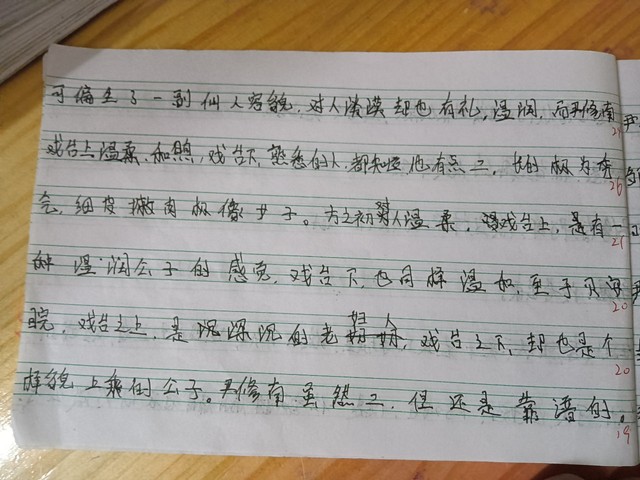 可偏生了一副仙人容貌,对人淡漠却也有礼,温润,而尹修南
戏台上温柔、和煦,戏台下,熟悉的人都知道他有点二,长的极为秀
气,细皮嫩肉极像女子。方之初对人温柔,戏台上,是有一
种温润公子的感觉,戏台下,也同样温和,至于贝海
晥,戏台之上,是沉深沉的老妇人,戏台之下,却也是个
样貌上乘的公子。尹修南虽然二,但还是靠谱的。
25
26
21
20
20
19